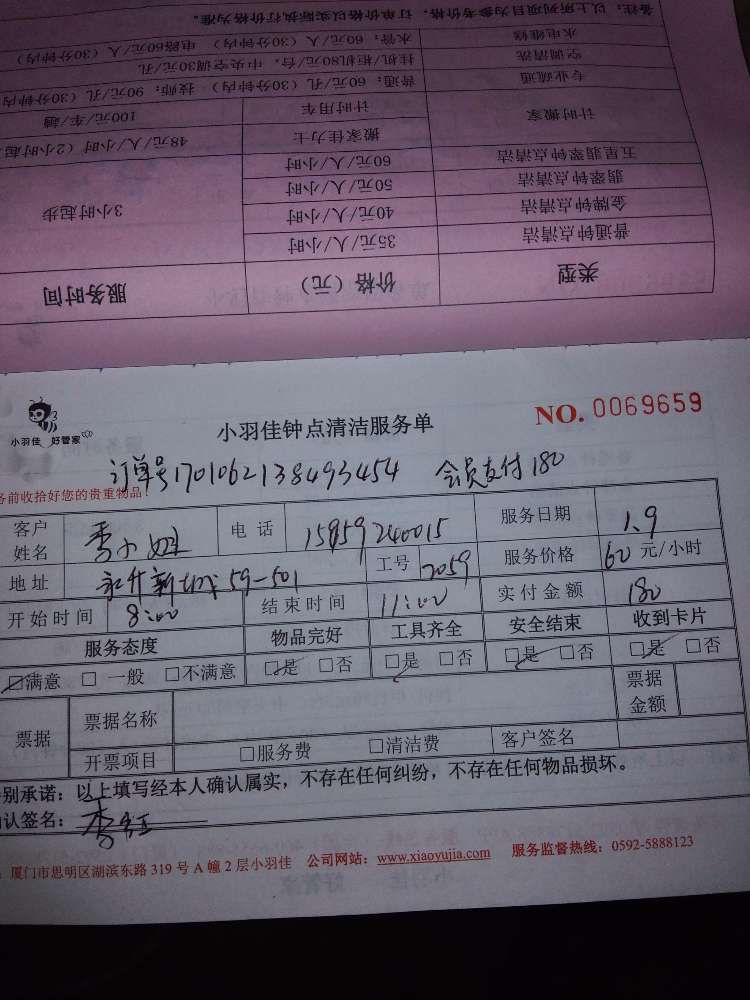 备注：以上所列项目为参考价格，订单价以实际执行价格为准。
水电维修 水管：60元/人（30分钟内） 电路60元/人（30分钟内）
空调清洗 挂机/柜机80元/台，中央空调30元/孔
专业疏通 普通：60元/孔（30分钟内） 技师：90元/孔（30分钟内）
计时搬家 计时用车 100元/车/趟
搬家佳力士 48元/人/小时（2小时起
五星翡翠钟点清洁 60元/人/小时
翡翠钟点清洁 50元/人/小时 3小时起步
金牌钟点清洁 40元/人/小时
普通钟点清洁 35元/人/小时
类型 价格（元） 服务时间
小羽佳 好管家
小羽佳钟点清洁服务单
NO. 0069659
订单号1701062138493454 会员支付180
务前收拾好您的贵重物品！
客户姓名 李小姐 电话 15959240015 服务日期 1.9
地址 永升新城59-501 工号 2059 服务价格 60元/小时
开始时间 8:00 结束时间 11:00 实付金额 180
服务态度 物品完好 工具齐全 安全结束 收到卡片
□满意 □ 一般 □不满意 □是 □否 □是 □否 □是 □否 □是 □否
票据 票据名称 票据金额
开票项目 □服务费 □清洁费 客户签名
别承诺：以上填写经本人确认属实，不存在任何纠纷，不存在任何物品损坏。
认签名：李
厦门市思明区湖滨东路319号A幢2层小羽佳 公司网站：www.xiaoyujia.com 服务监督热线：0592-5888123